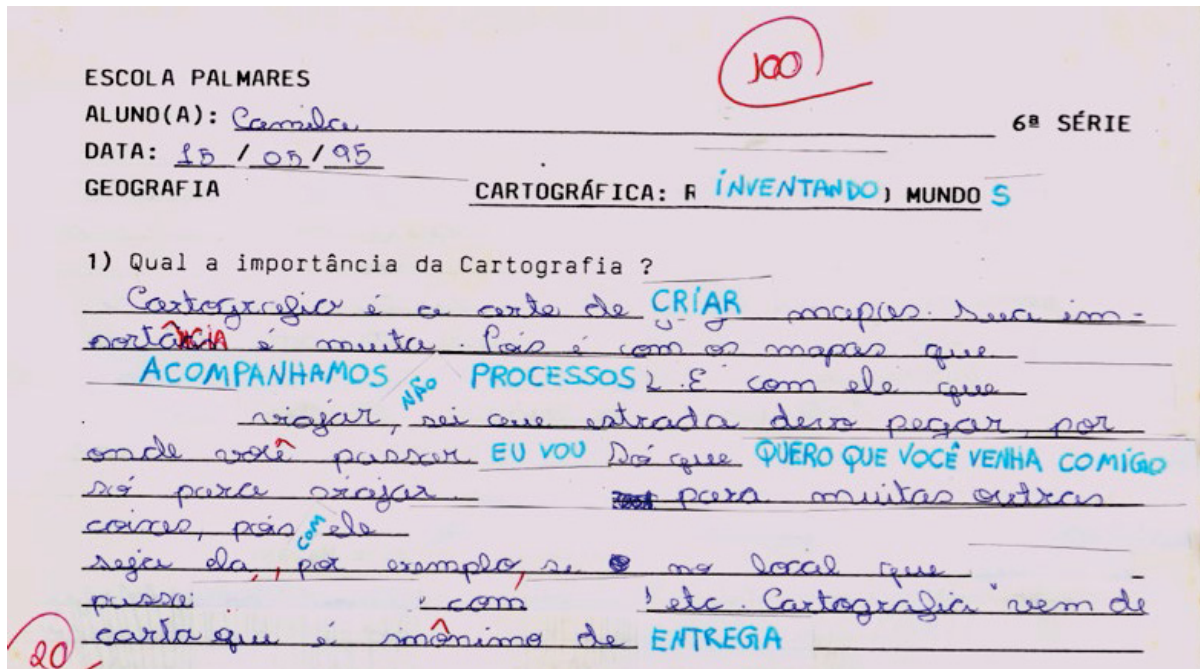 100
ESCOLA PALMARES
ALUNO(A): Camila
6ª SÉRIE
DATA: 15 / 05 / 95
GEOGRAFIA
CARTOGRÁFICA: R INVENTANDO ) MUNDO S
1) Qual a importância da Cartografia ?
Cartografia é a arte de CRIAR mapas. Sua im-
portÂNCIA é muita. Pois é com os mapas que
ACOMPANHAMOS PROCESSOS. É com ele que
viajar, NÃO sei que estrada devo pegar, por
onde você passar EU VOU Só que QUERO QUE VOCÊ VENHA COMIGO
só para viajar. para muitas outras
coisas, pois COM ele
seja da, , por exemplo, se no local que
passei com etc. Cartografia vem de
carta que é sinônimo de ENTREGA
20